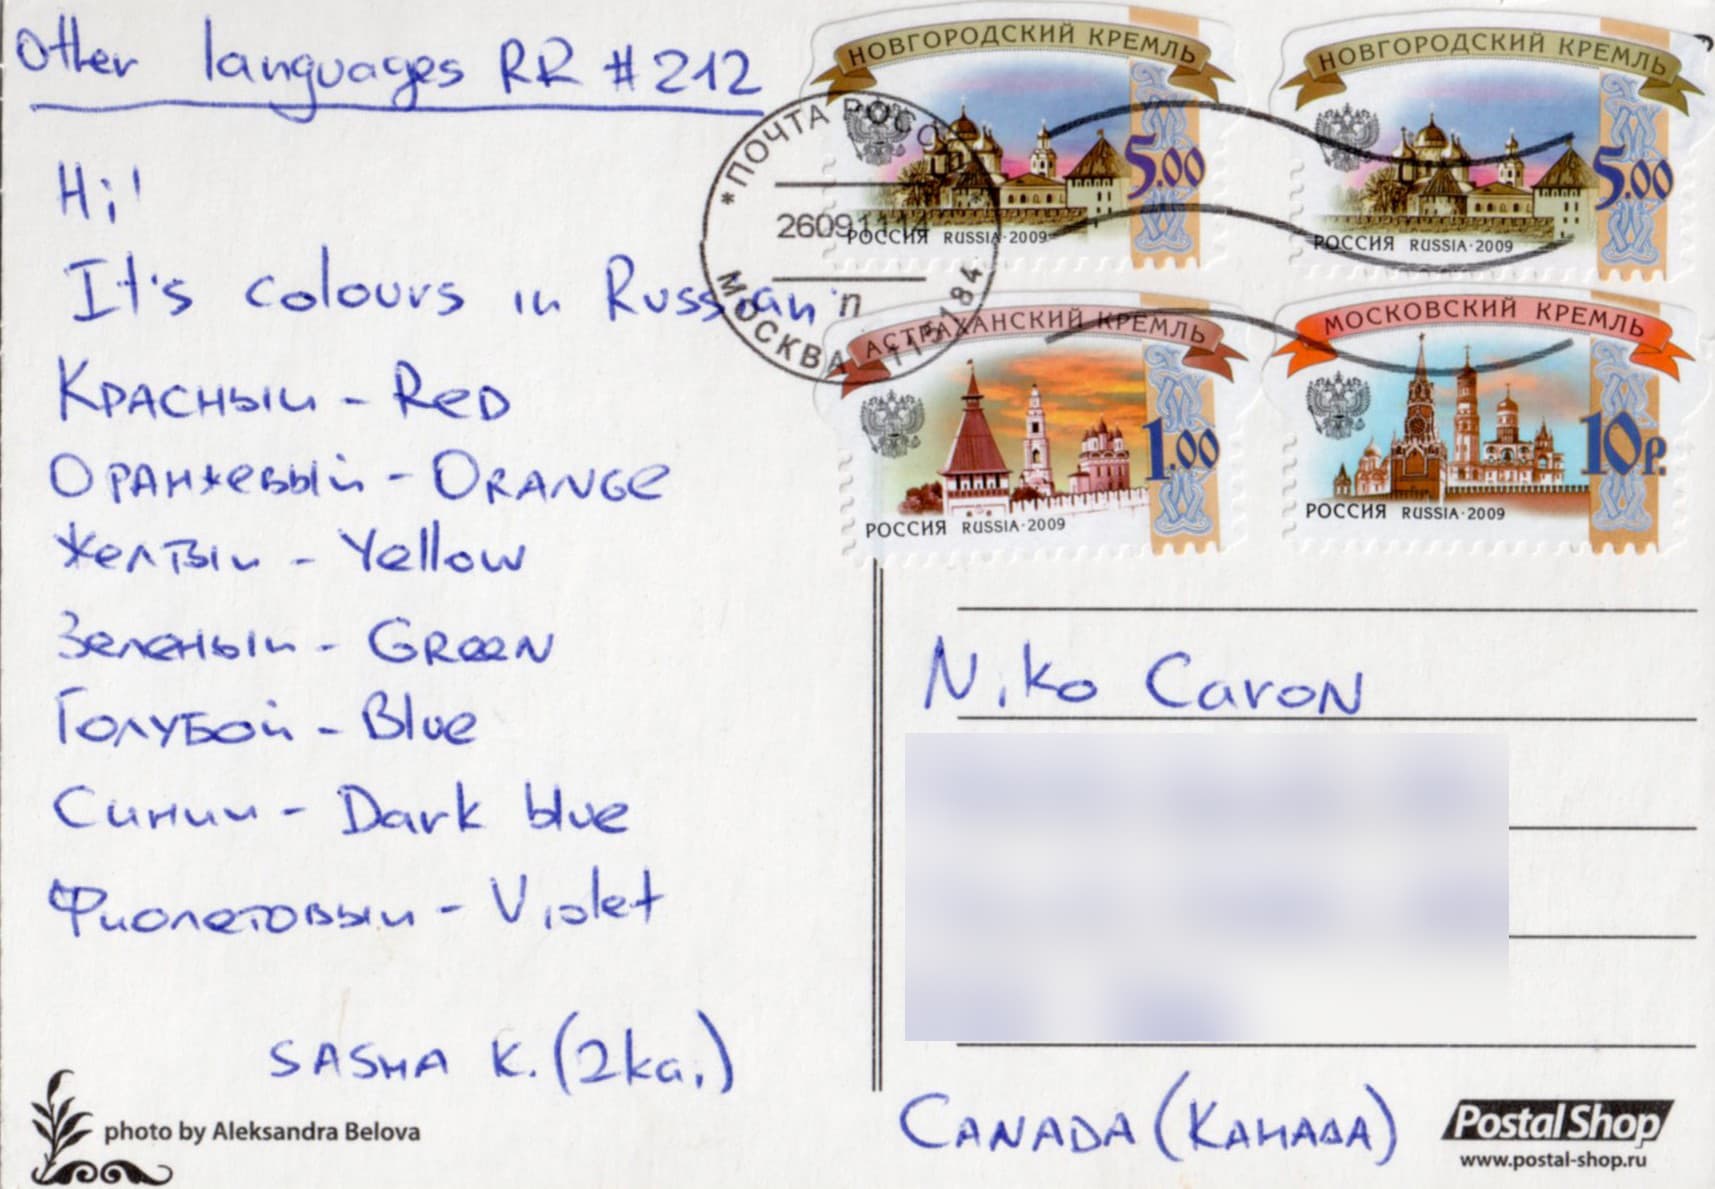 Other languages RR #212
Hi!
It's colours in Russian
Красный - Red
Оранжевый - Orange
Желтый - Yellow
Зеленый - Green
Голубой - Blue
Синий - Dark blue
Фиолетовый - Violet
SASHA K. (2kai)
photo by Aleksandra Belova
НОВГОРОДСКИЙ КРЕМЛЬ
5.00
РОССИЯ RUSSIA·2009
НОВГОРОДСКИЙ КРЕМЛЬ
5.00
РОССИЯ RUSSIA·2009
АСТРАХАНСКИЙ КРЕМЛЬ
1.00
РОССИЯ RUSSIA·2009
МОСКОВСКИЙ КРЕМЛЬ
10р.
РОССИЯ RUSSIA·2009
*ПОЧТА РОСС
26091114
п
МОСКВА 115184
Niko Caron
CANADA (КАНАДА)
Postal Shop
www.postal-shop.ru